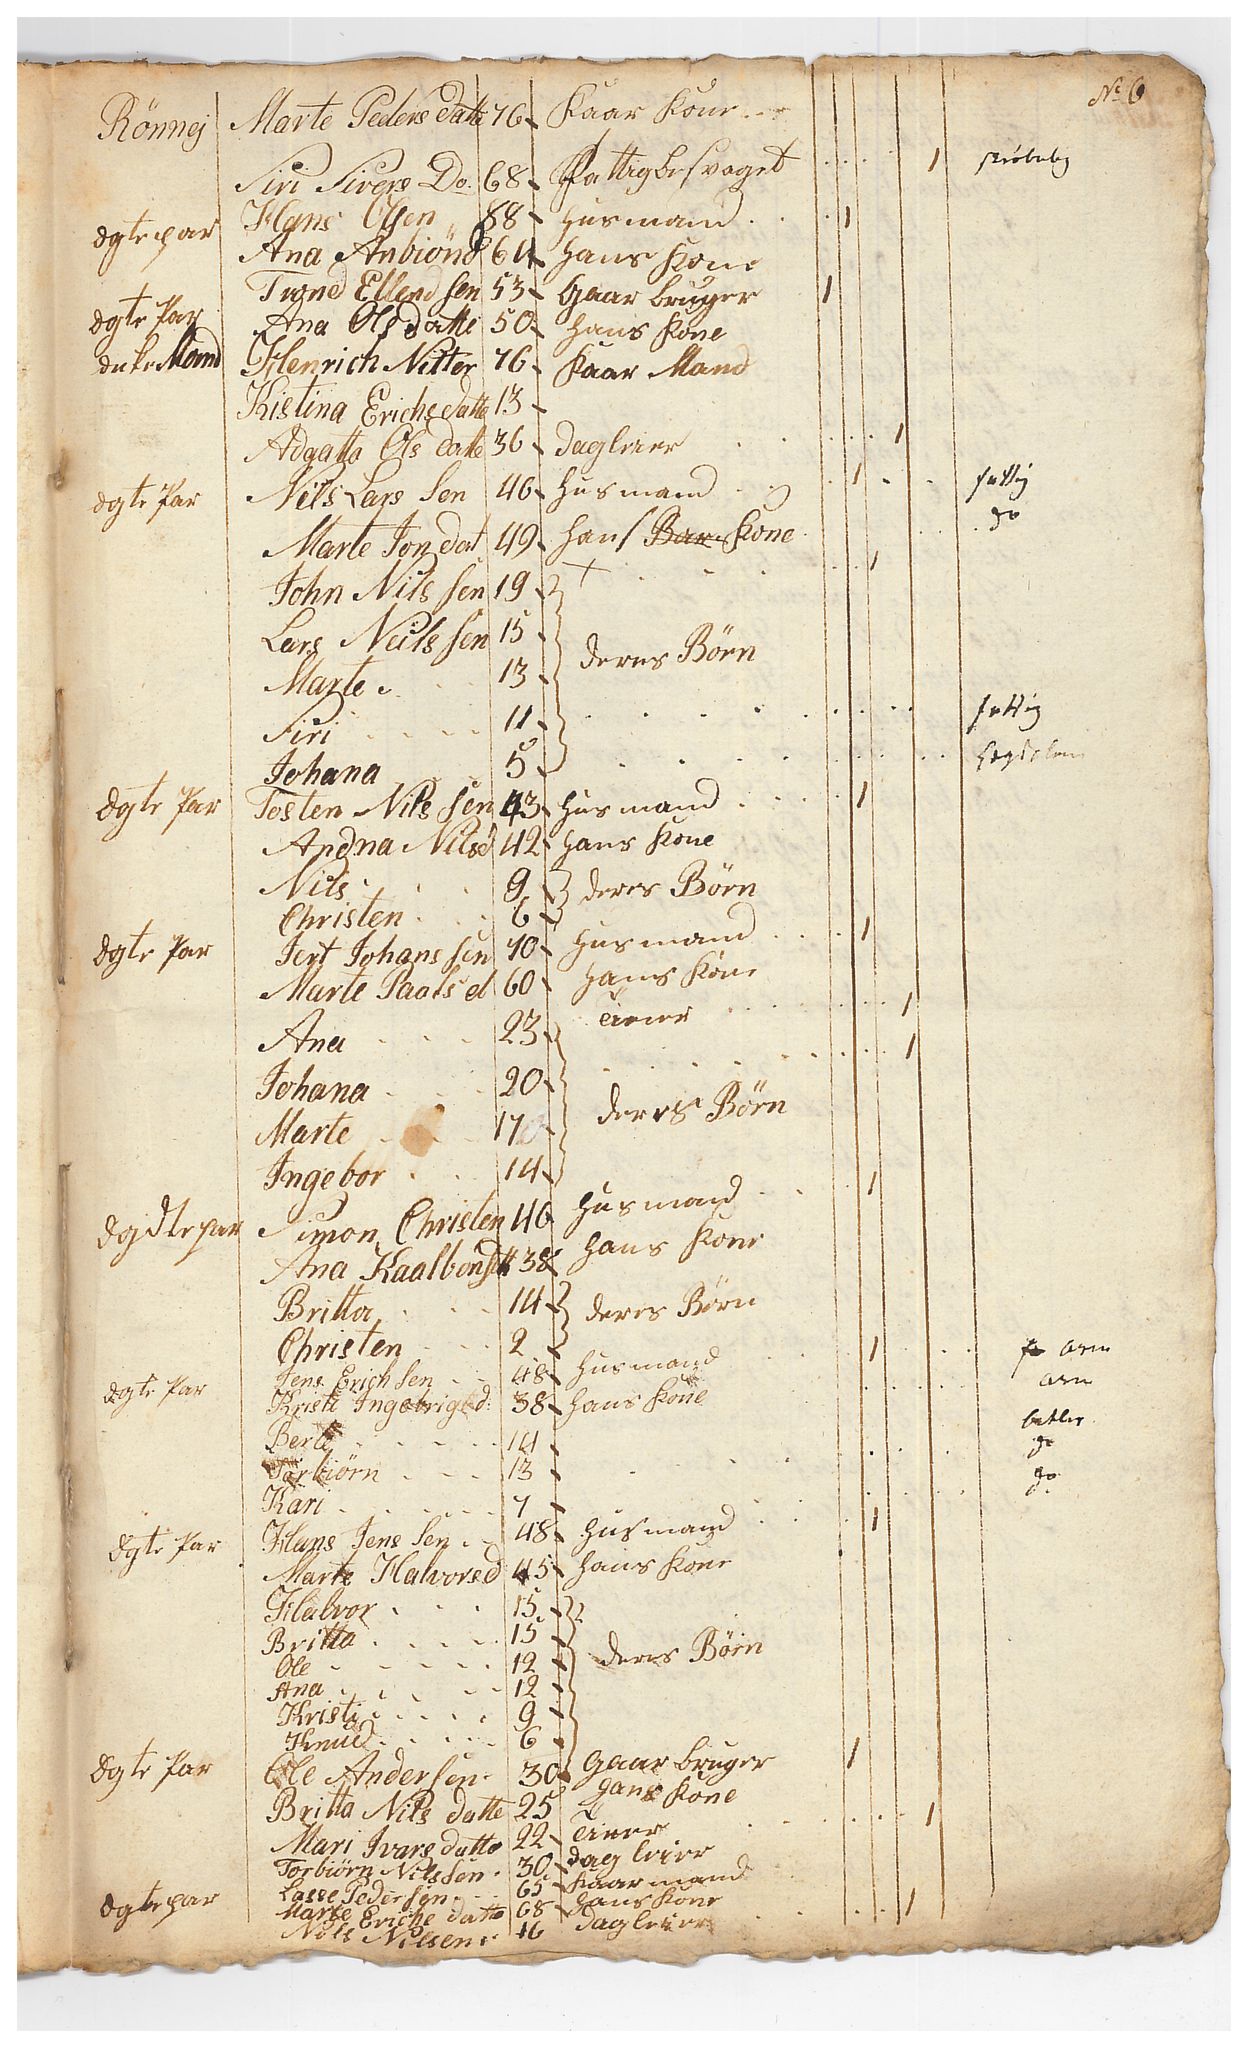 No 6
Rönnej Marte Peders datte 76 Kaar Kone
Siri Sivers Do. 68 Fattigbesvaget
dgte par Hans Olsen 88 husmand 1
Ana Anbiönd 64 hans Kone
Trond Ellend sen 53 Gaar bruger 1
dgte Par Ana Olsdatte 50 hans Kone
Mand Henrich Nitter 76 Kaar Mand
Kistina Erichsdatte 13
Adgatta Ols datte 36 dagleier 1
dgte Par Nils Lars Sen 46 husmand 1 fattig
Marte Jon dat 49 hans Kone do
John Nils sen 19 1
Lars Neils sen 15
Marte 13 deres Börn
Siri 11 fattig
Johana 5
dgte Par Tosten Nils sen 43 husmand 1
Andna Nilsd 42 hans Kone
Nils 9 deres Börn
Christen 6
dgte Par Jert Johans sen 70 husmand 1
Marte Paals d 60 hans Kone
Ana 23 tiener 1
Johana 20 1
Marte 17 deres Börn
Ingebor 14
dgdte par Simon Christen 46 husmand 1
Ana Kaalbensdt 38 hans Kone
Britta 14 deres Börn
Christen 2
dgte Par Jens Erich sen 48 husmand 1 arm
Kristi Ingebrigtd 38 hans Kone arm
Berte 14 betler
Torbiörn 13 do
Kari 7 do.
dgte Par Hans Jens Sen 48 husmand 1
Marte Halvorsd 45 hans Kone
Halvor 15
Britta 15
Ole 12 deres Börn
Ana 12
Kristi 9
Knud 6
dgte Par Ole Andersen 30 Gaar bruger 1
Britta Nils datte 25 hans Kone
Mari Ivars datte 22 tiener 1
Torbiörn Nilssen 30 dag leier
Lasse Pedersen 65 Kaar mand
dgte par Marte Erichs datte 68 hans Kone
Nels Nilsen 16 dagleier 1